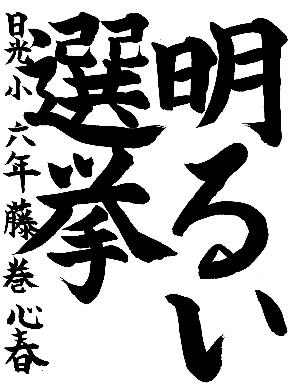 明るい
選挙
日光小 六年 藤巻心春